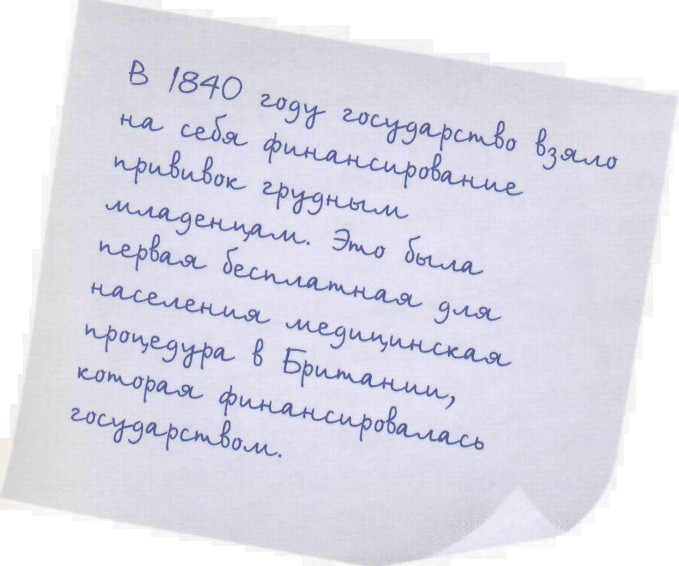 В 1840 году государство взяло
на себя финансирование
прививок грудным
младенцам. Это была
первая бесплатная для
населения медицинская
процедура в Британии,
которая финансировалась
государством.